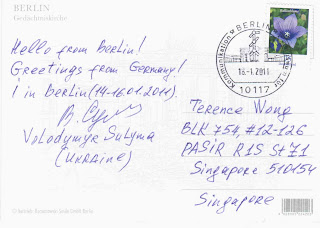 BERLIN
Gedächtniskirche
Hello from Berlin!
Greetings from Germany!
I in berlin (14-16.01.2011).
Volodymyr Sutyma
(UKRAINE)
BERLIN
Kommunikation
16-1.2011
10117
Terence Wong
BLK 754, #12-126
PASIR RIS St 71
Singapore 510754
Singapore